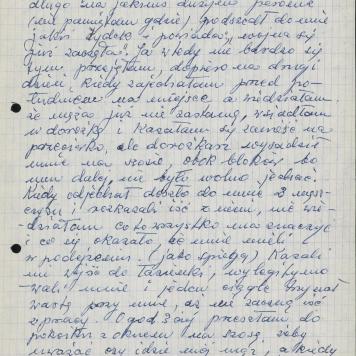 długo na jakimś dużym peronie
(nie pamiętam gdzie). Podszedł do mnie
jakiś Żydek i powiada, wojna się
już zaczęła. Ja wtedy nie bardzo się
tym przejęłam, dopiero na drugi
dzień, kiedy zajechałam przed po-
łudniem na miejsce a wiedziałam
że męża już nie zastanę, wsiadłam
w dorożkę i kazałam się zawieść na
, ale dorożkarz wysadził
mnie na szosie, obok bloków bo
men dalej nie było wolno jechać.
Kiedy odjechał doszło do mnie 3 męż-
czyzn i rozkazali iść z niemi, nie wie-
działam co to wszystko ma znaczyć
i co się okazało, że mnie mieli
w podejrzeniu (jako szpiega). Kazali
mi wyjść do łazienki, wylegitymo-
wali mnie i jeden ciągle trzymał
wartę przy mnie, aż nie zaczną iść
z pracy. O god 3 ej przeszłam do
pokoiku z oknem na szosę, żeby
uważać czy idzie mój mąż, a kiedy